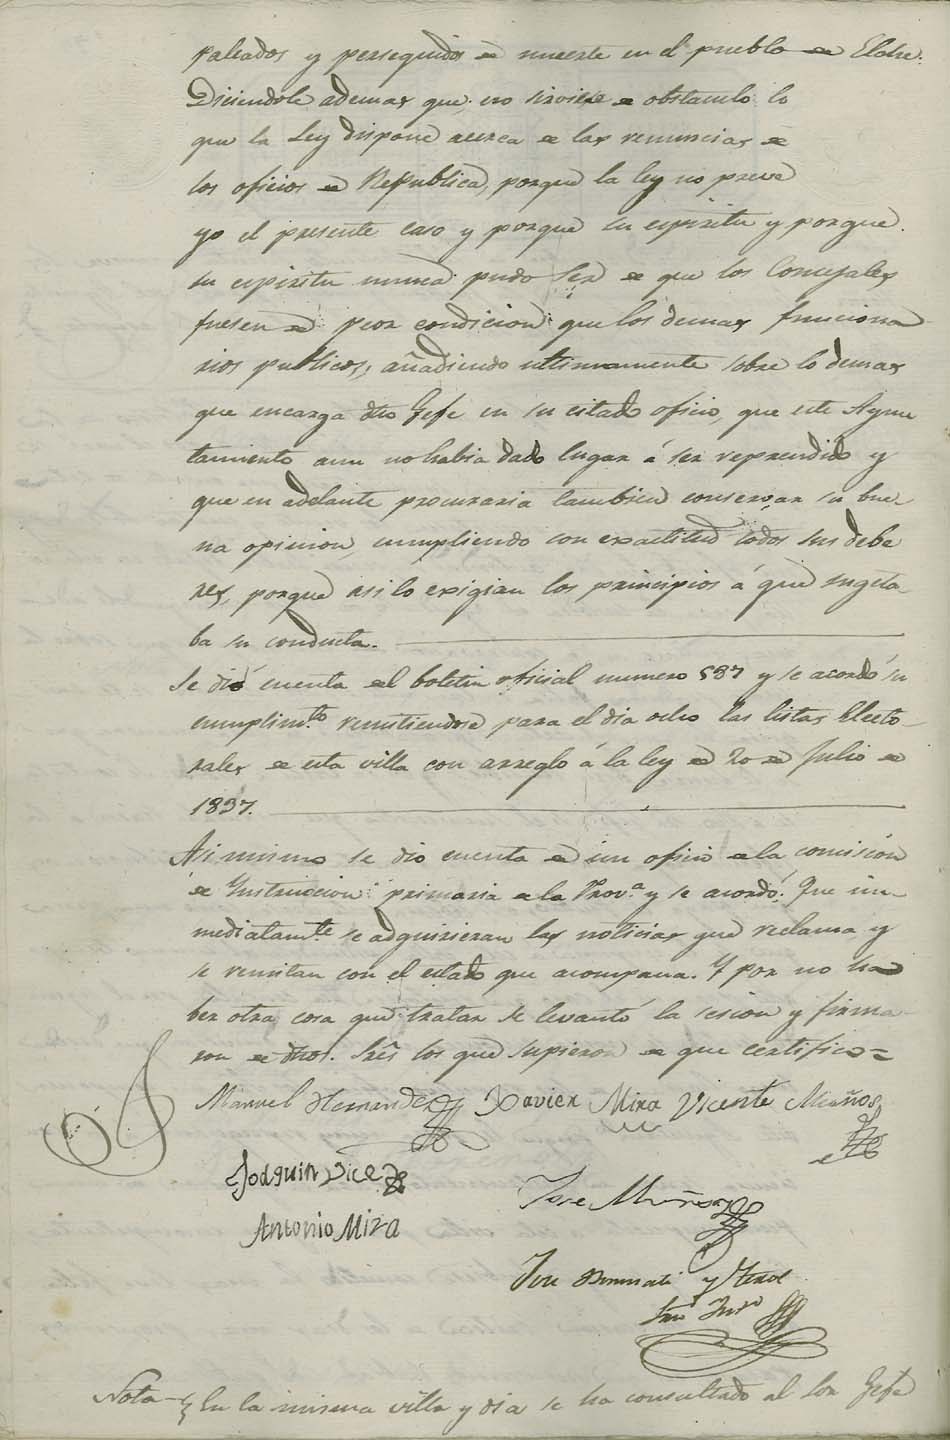 paleados y perseguidos de muerte en el pueblo de Elche.
Diciendole ademas que no sirviese de obstaculo lo
que la Ley dispone acerca de las renuncias de
los oficios de Republica, porque la ley no preve
yo el presente caso y porque su espiritu y porque
su espiritu nunca pudo ser de que los Concejales
fuesen de peor condicion que los demas funciona
rios publicos, añadiendo ultimamente sobre lo demas
que encarga dho Gefe en su citado oficio, que este Ayun
tamiento aun no habia dado lugar á ser reprendido y
que en adelante procuraria tambien conservar su bue-
na opinion, cumpliendo con exactitud todos sus debe
res, porque asi lo exigian los principios á que sugeta-
ba su conducta.
Se dió cuenta del boletin oficial numero 587 y se acordó su
cumplimto remitiendose para el dia ocho las listas Electo-
rales de esta villa con arreglo á la ley de 20 de Julio de
1837.
Asi mismo se dio cuenta de un oficio de la comision
de Ynstruccion primaria de la Prova y se acordó: Que in-
mediatamte se adquirieran las noticias que reclama y
se remitan con el estado que acompana. Y por no ha
ber otra cosa que tratar se levantó la sesion y firma-
ron de dhos. Sres los que supieron de que certifico=
Manuel Hernandez Xavier Mira Vicente Muños
Joaquin Vice
Antonio Mira
Jose Muñoz
Jose y Terol
Srio Intno
Nota En la misma villa y dia se ha consultado al Sor Gefe